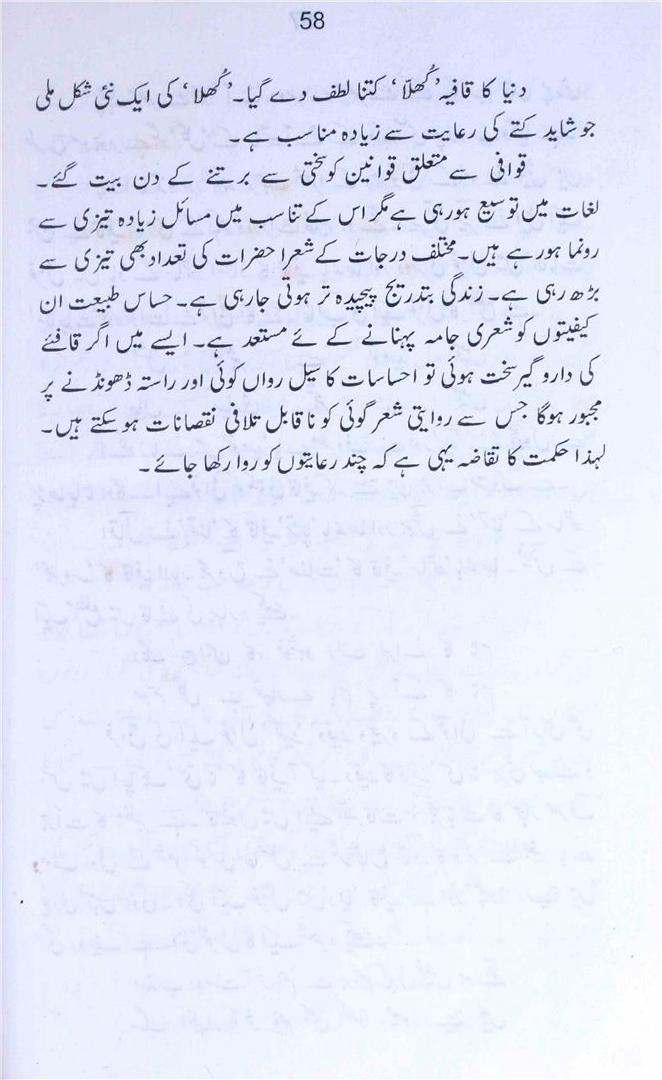 58
دنیا کا قافیہ ’کُھلّا‘ کتنا لطف دے گیا۔ ’کُھلا‘ کی ایک نئی شکل ملی
جو شاید کتے کی رعایت سے زیادہ مناسب ہے۔
قوافی سے متعلق قوانین کو سختی سے برتنے کے دن بیت گئے۔
لغات میں توسیع ہو رہی ہے مگر اس کے تناسب میں مسائل زیادہ تیزی سے
رونما ہو رہے ہیں۔ مختلف درجات کے شعرا حضرات کی تعداد بھی تیزی سے
بڑھ رہی ہے۔ زندگی بتدریج پیچیدہ تر ہوتی جا رہی ہے۔ حساس طبیعت ان
کیفیتوں کو شعری جامہ پہنانے کے ئے مستعد ہے۔ ایسے میں اگر قافئے
کی دارو گیر سخت ہوئی تو احساسات کا سیل رواں کوئی اور راستہ ڈھونڈنے پر
مجبور ہوگا جس سے روایتی شعر گوئی کو نا قابل تلافی نقصانات ہو سکتے ہیں۔
لہذا حکمت کا تقاضہ یہی ہے کہ چند رعایتوں کو روا رکھا جائے۔